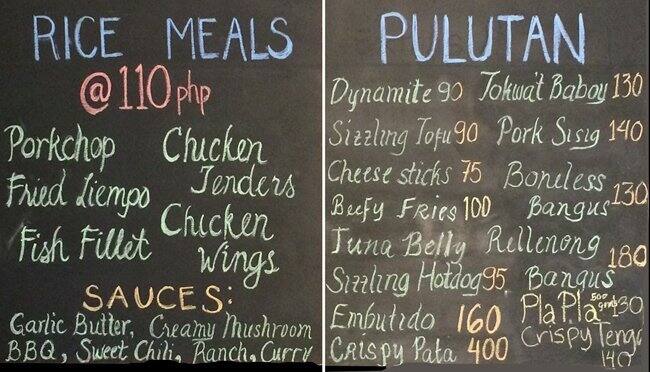 RICE MEALS
@110 php
Porkchop
Fried Liempo
Fish Fillet
Chicken
Tenders
Chicken
Wings
SAUCES:
Garlic Butter, Creamy Mushroom
BBQ, Sweet Chili, Ranch, Curry
PULUTAN
Dynamite 90
Sizzling Tofu 90
Cheese sticks 75
Beefy Fries 100
Tuna Belly
Sizzling Hotdog 95
Embutido 160
Crispy Pata 400
Tokwa't Baboy 130
Pork Sisig 140
Boneless
Bangus 130
Rellenong
Bangus 180
Pla Pla 500
Crispy Tenga
140